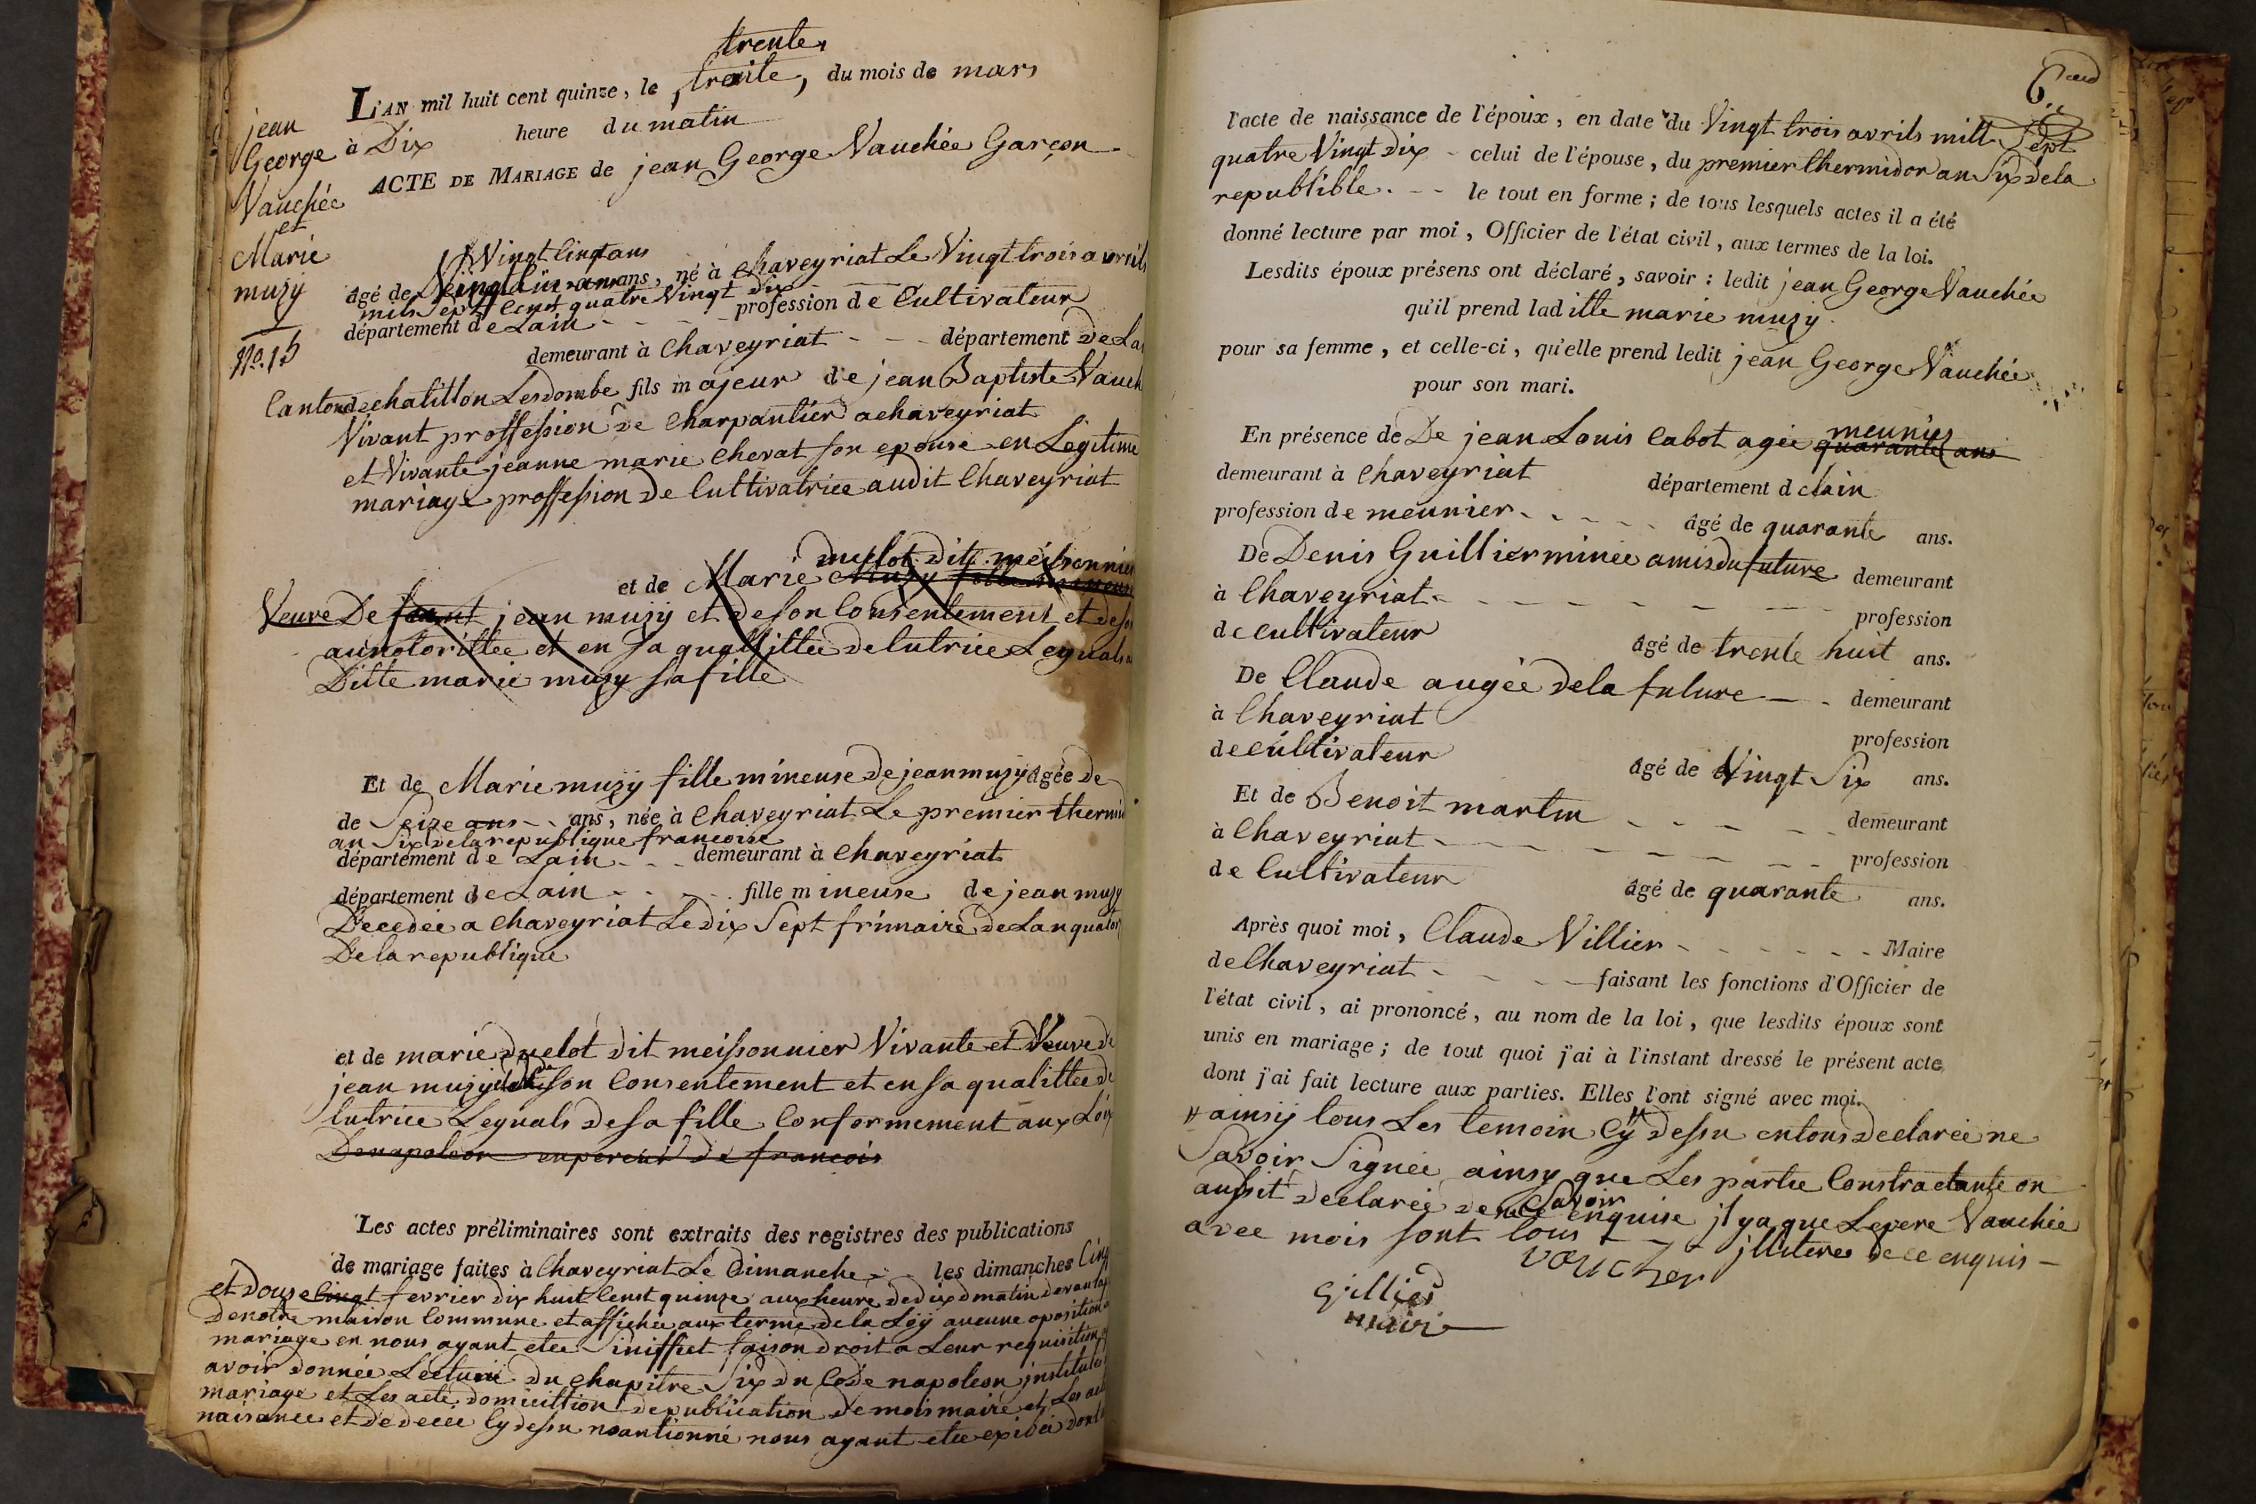 trente,
L'AN mil huit cent quinze, le traite, du mois de mars
à Dix heure du matin
ACTE DE MARIAGE de jean George Vauchée Garçon
jean
George
Vauchée
et
Marie
muzÿ
No. 15
Vingt Cinq ans
âgé de ans, né à Chaveyriat Le Vingt trois avrils
mils Sept Cent quatre Vingt dix
département de Lain - - - profession de Cultivateur
demeurant à Chaveyriat - - - département De La
Canton de chatillon Lesdombe fils majeur de jean Baptiste Vauch
Vivant proffession de Charpantier a chaveyriat
et Vivante jeanne marie Chevat son epouse en Legitime
mariage proffession De Cultivatrice audit Chaveyriat
duelot dit meissonnier
et de Marie muzy fille mineur
Veuve De feunt jean muzÿ et de son Consentement et deson
autotorittee et en Sa quallittee de tutrice Leguals
Ditte marie muzy Sa fille
Et de Marie muzÿ fille mineuse De jean muzÿ agée de
de Seize ans - - ans, née à Chaveyriat Le premier thermid
an Six de la republique francoise
département de Lain - - - demeurant à Chaveyriat
département de Lain - - - - fille mineuse de jean muzy
Decedée a chaveyriat Le Dix Sept frimaire de Lan quator
De la republique
et de marie Duelot dit meissonnier Vivante et Veuve de
jean muzÿ de son Consentement et en sa qualittee de
tutrice Leguals De sa fille Conformement aux Loy
De napoleon enpereur De francois
Les actes préliminaires sont extraits des registres des publications
de mariage faites à Chaveyriat Le Dimanche - - les dimanches Cinq
et Douze Cinqt fevrier dix huit Cent quinze aux heure De dix d matin devant la
De notre maison Commune et affichée aux terme de la Loÿ aucune oposition a
mariage en nous ayant etee Siniffiet faison droit a Leur requisition
avoir Donnée Lecture Du Chapitre Six du Code napoleon institulee
mariage et Les acte domicillion De publication De mois maire et Les acte
naisance et de decee Cy dessu mantionné nous ayant etee exibée dont
6 eud
l'acte de naissance de l'époux, en date du Vingt trois avrils mill Sept
quatre Vingt Dix - celui de l'épouse, du premier thermidor an Six de la
republible. - - le tout en forme; de tous lesquels actes il a été
donné lecture par moi, Officier de l'état civil, aux termes de la loi.
Lesdits époux présens ont déclaré, savoir : ledit jean George Vauchée
qu'il prend lad itte marie muzy
pour sa femme, et celle-ci, qu'elle prend ledit jean George Vauchée
pour son mari.
En présence de De jean Louis Cabot agée quarante ans meunier
demeurant à Chaveyriat département d elain
profession de meunier - - - - - âgé de quarante ans.
De Denis Guillierminée amis du future demeurant
à Chaveyriat - - - - - - - profession
de Cultivateur âgé de trente huit ans.
De Claude augée De la future - - demeurant
à Chaveyriat profession
de Cultivateur âgé de Vingt Six ans.
Et de Benoit martin - - - - - demeurant
à Chaveyriat - - - - - - - - profession
de Cultivateur âgé de quarante ans.
Après quoi moi, Claude Villier - - - - - - Maire
de Chaveyriat - - - - - faisant les fonctions d'Officier de
l'état civil, ai prononcé, au nom de la loi, que lesdits époux sont
unis en mariage; de tout quoi j'ai à l'instant dressé le présent acte,
dont j'ai fait lecture aux parties. Elles l'ont signé avec moi.
" ainsÿ tous Les temoin Cÿ" Dessu entous Declarée ne
Savoir Signée ainsy que Les partie Constractante on
aussit Declarée De ne Savoir enquise jl y a que Le pere Vauchée
avec mois sont tous - - jllitere de ce enquis -
voucher
Gillier
maire